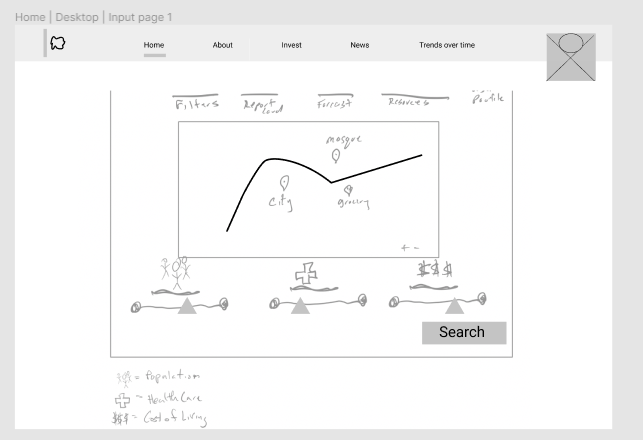 Home | Desktop | Input page 1
Home About Invest News Trends over time
Filters Report Forecast Resources Profile
mosque
City grocery
+ -
$$$
Search
= Population
= HealthCare
$$$ = Cost of Living